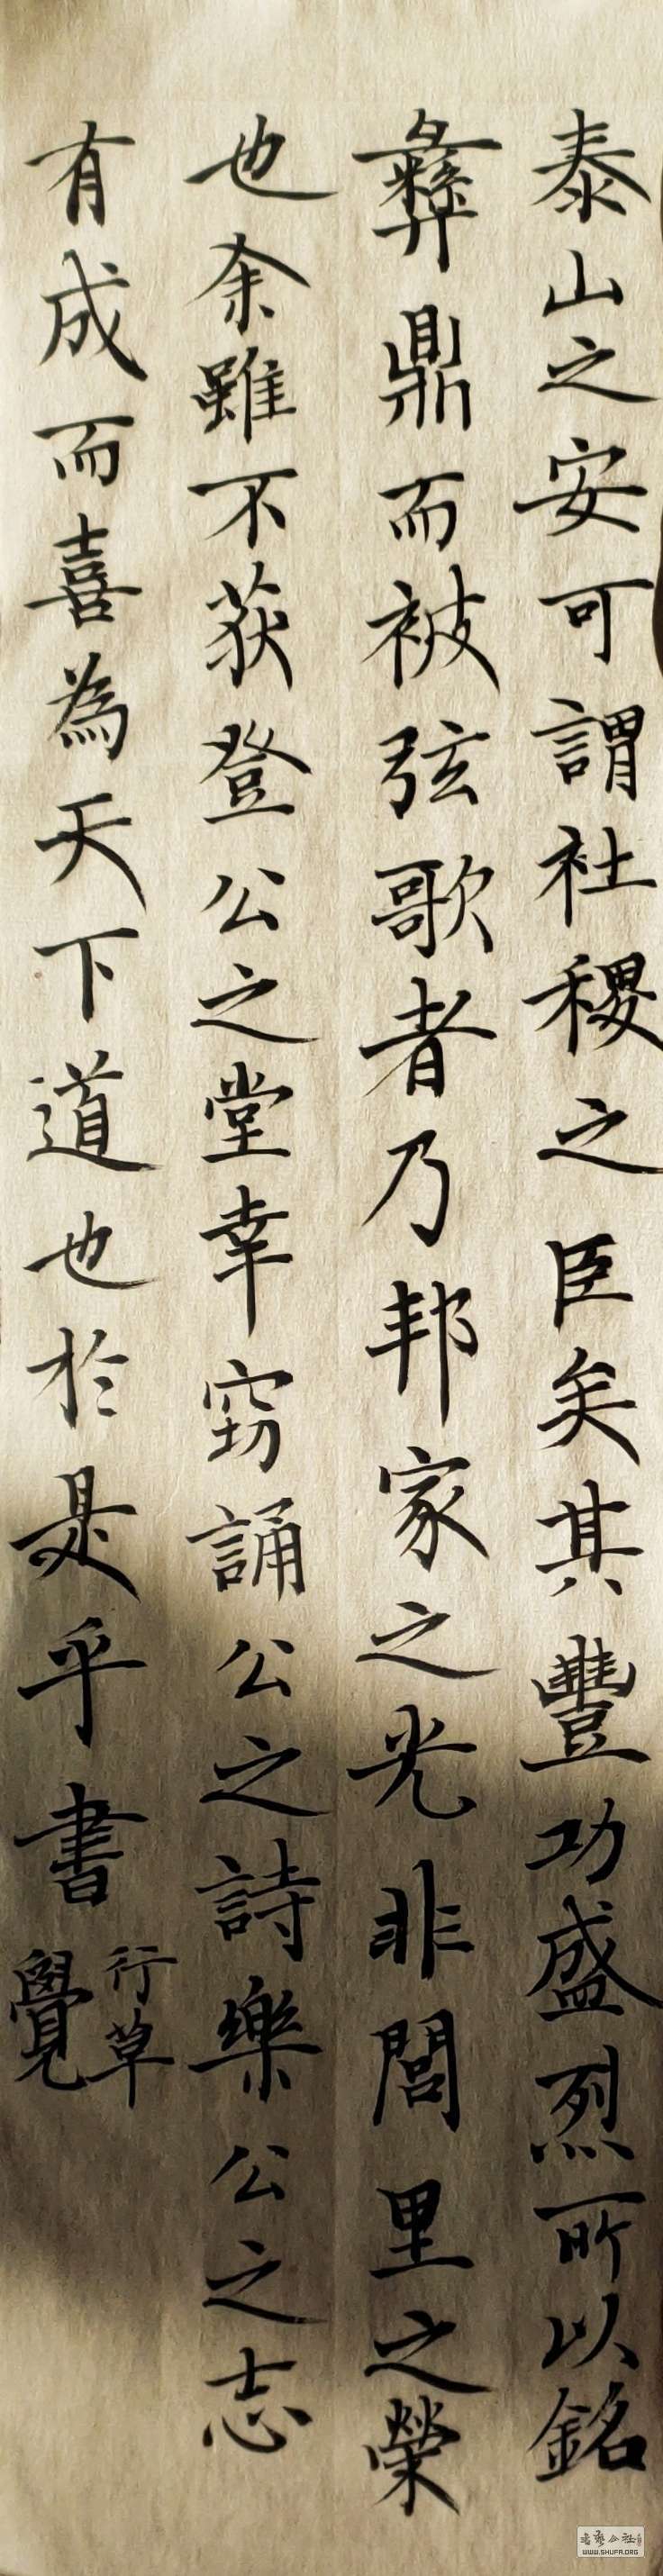 泰山之安可謂社稷之臣矣其豐功盛烈所以銘
彝鼎而被弦歌者乃邦家之光非閭里之榮
也余雖不获登公之堂幸窃誦公之詩樂公之志
有成而喜為天下道也於是乎書
行草
覺
WWW.SHUFA.ORG